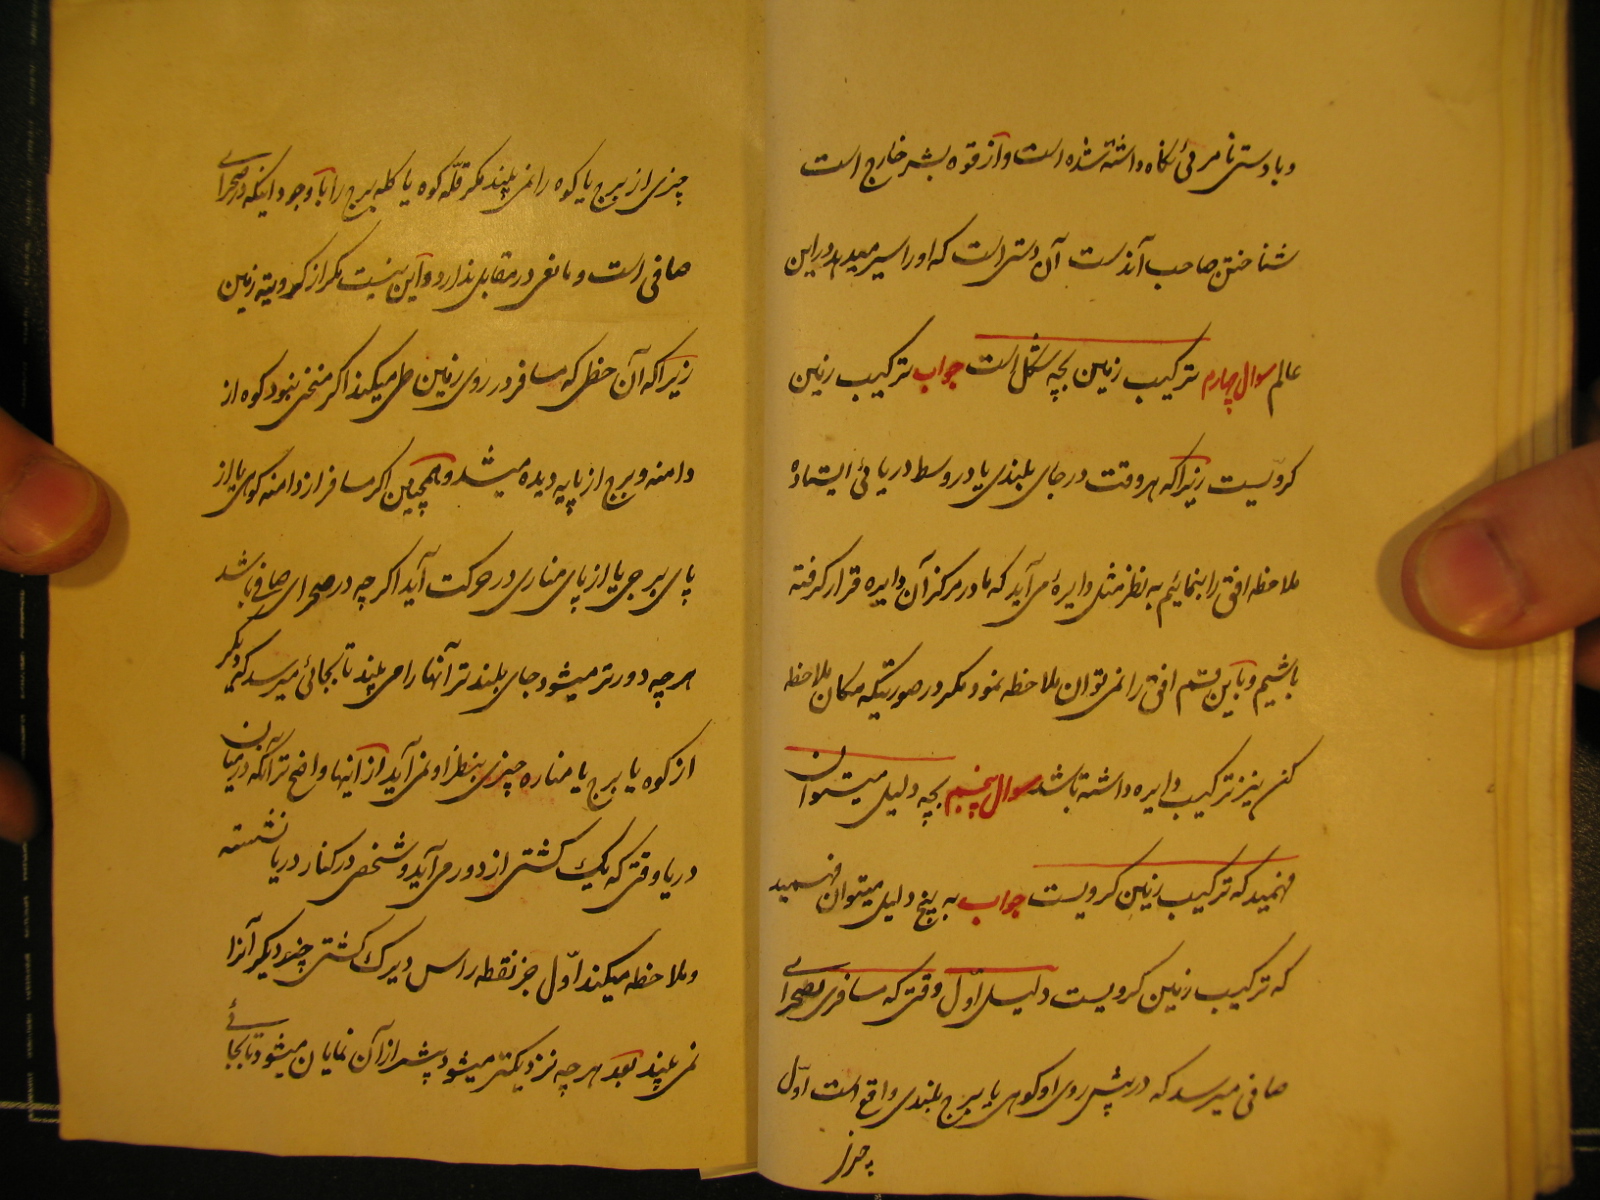 و با دستی نامرئی نگاه داشته شده است و از قوه بشر خارج است
شناختن صاحب آندست آن دستی است که او را سیر میدهد در این
عالم سوال چهارم ترکیب زمین بچه شکل است جواب ترکیب زمین
کرویست زیرا که هر وقت در جای بلندی یا در وسط دریائی ایستاده
ملاحظه افق را بنمائیم به نظر مثل دایرهٔ می آید که ما در مرکز آن دایره قرار گرفته
باشیم و باین قسم افق را نمی توان ملاحظه نمود مگر در صورتیکه مکان ملاحظه
کن نیز ترکیب دایره داشته باشد سوال پنجم بچه دلیل میتوان
فهمید که ترکیب زمین کرویست جواب به پنج دلیل میتوان فهمید
که ترکیب زمین کرویست دلیل اوّل وقتی که مسافری بصحرای
صافی میرسد که در پیش روی او کوهی یا برج بلندی واقع است اوّل
چیزی از برج یا کوه را نمی بیند مگر قلّه کوه یا کله برج را با وجود اینکه در صحرای
صافی است و مانعی در مقابل ندارد و این نیست مگر از کرویته زمین
زیرا که آن خطی که مسافر در روی زمین طی میکند اگر منحنی نبود کوه از
دامنه و برج از پایه دیده میشد و همچنین اگر مسافر از دامنه کوهی یا از
پای برجی یا از پای مناری در حرکت آید اگر چه در صحرای صافی باشد
هر چه دورتر میشود جای بلندتر آنها را می بیند تا بجائی میرسد که دیگر
از کوه یا برج یا مناره چیزی بنظر او نمی آید از اینها واضح تر آنکه در میان
دریا وقتی که یک کشتی از دور می آید و شخص در کنار دریا نشسته
و ملاحظه میکند اوّل جز نقطه راس دیرک کشتی چیز دیگر آنرا
نمی بیند بعد هر چه نزدیکتر میشود بیشتر از آن نمایان میشود تا بجائی